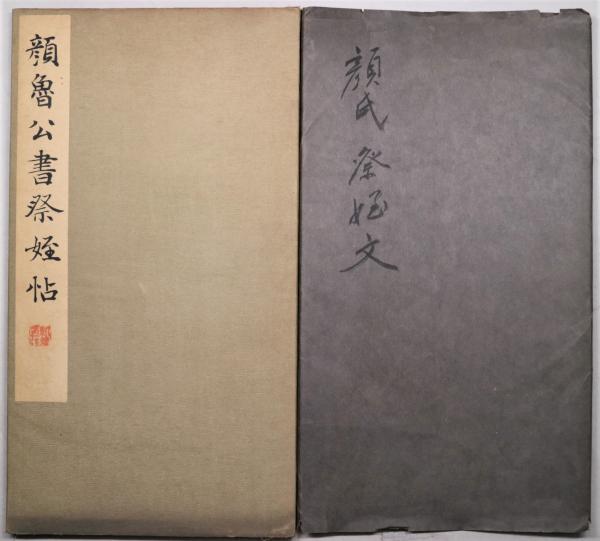 顔魯公書祭姪帖
顔氏祭姪文